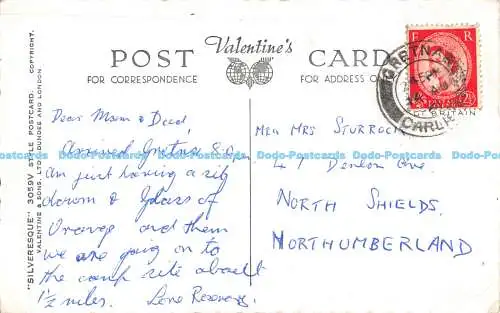 POST Valentine's CARD
FOR CORRESPONDENCE FOR ADDRESS
"SILVERESQUE" 3059V STYLE POSTCARD. COPYRIGHT.
VALENTINE & SONS, LTD., DUNDEE AND LONDON.
Dear Mam & Dad,
Arrived Gretna 8.0
am just having a sit
down & glass of
and then
we are going on to
the camp site about
1½ miles. Love
E R
GRETNA
CARLISLE
BRITAIN
Mr & Mrs STURROCK
41 Denton Ave
NORTH SHIELDS.
NORTHUMBERLAND
Dodo-Postcards Dodo-Postcards Dodo-Postcards Dodo-Postcards